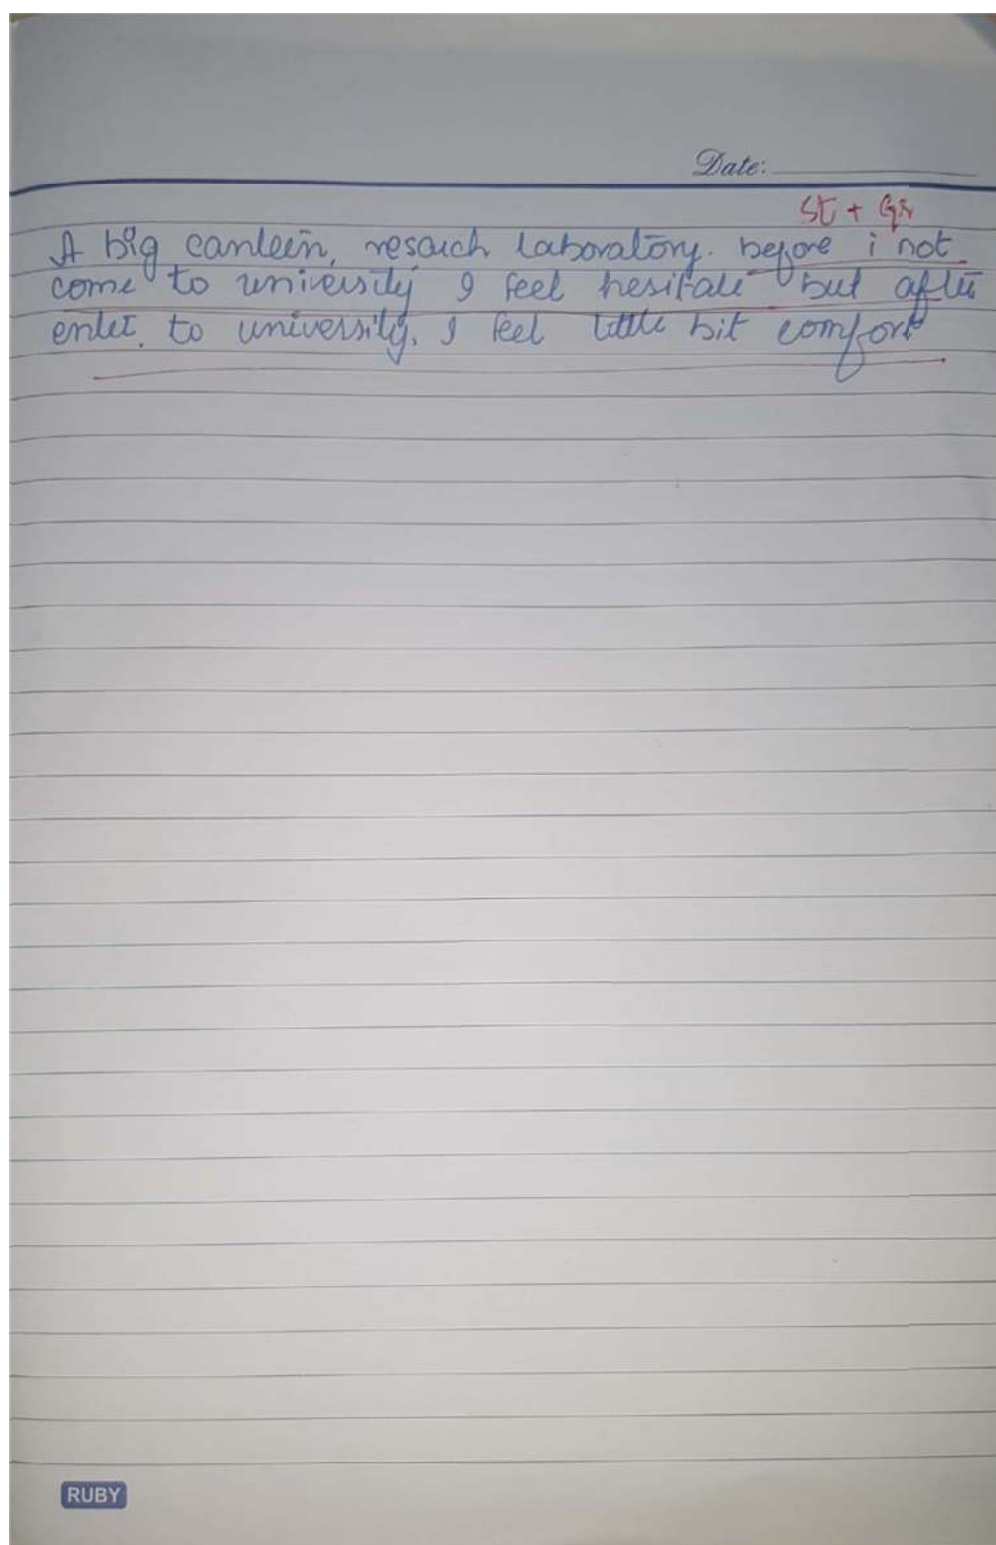 Date:
St + Gr
A big canteen, resarch laboratory. before i not
come to university I feel hesitate but after
enter to university, I feel little bit comfort
RUBY